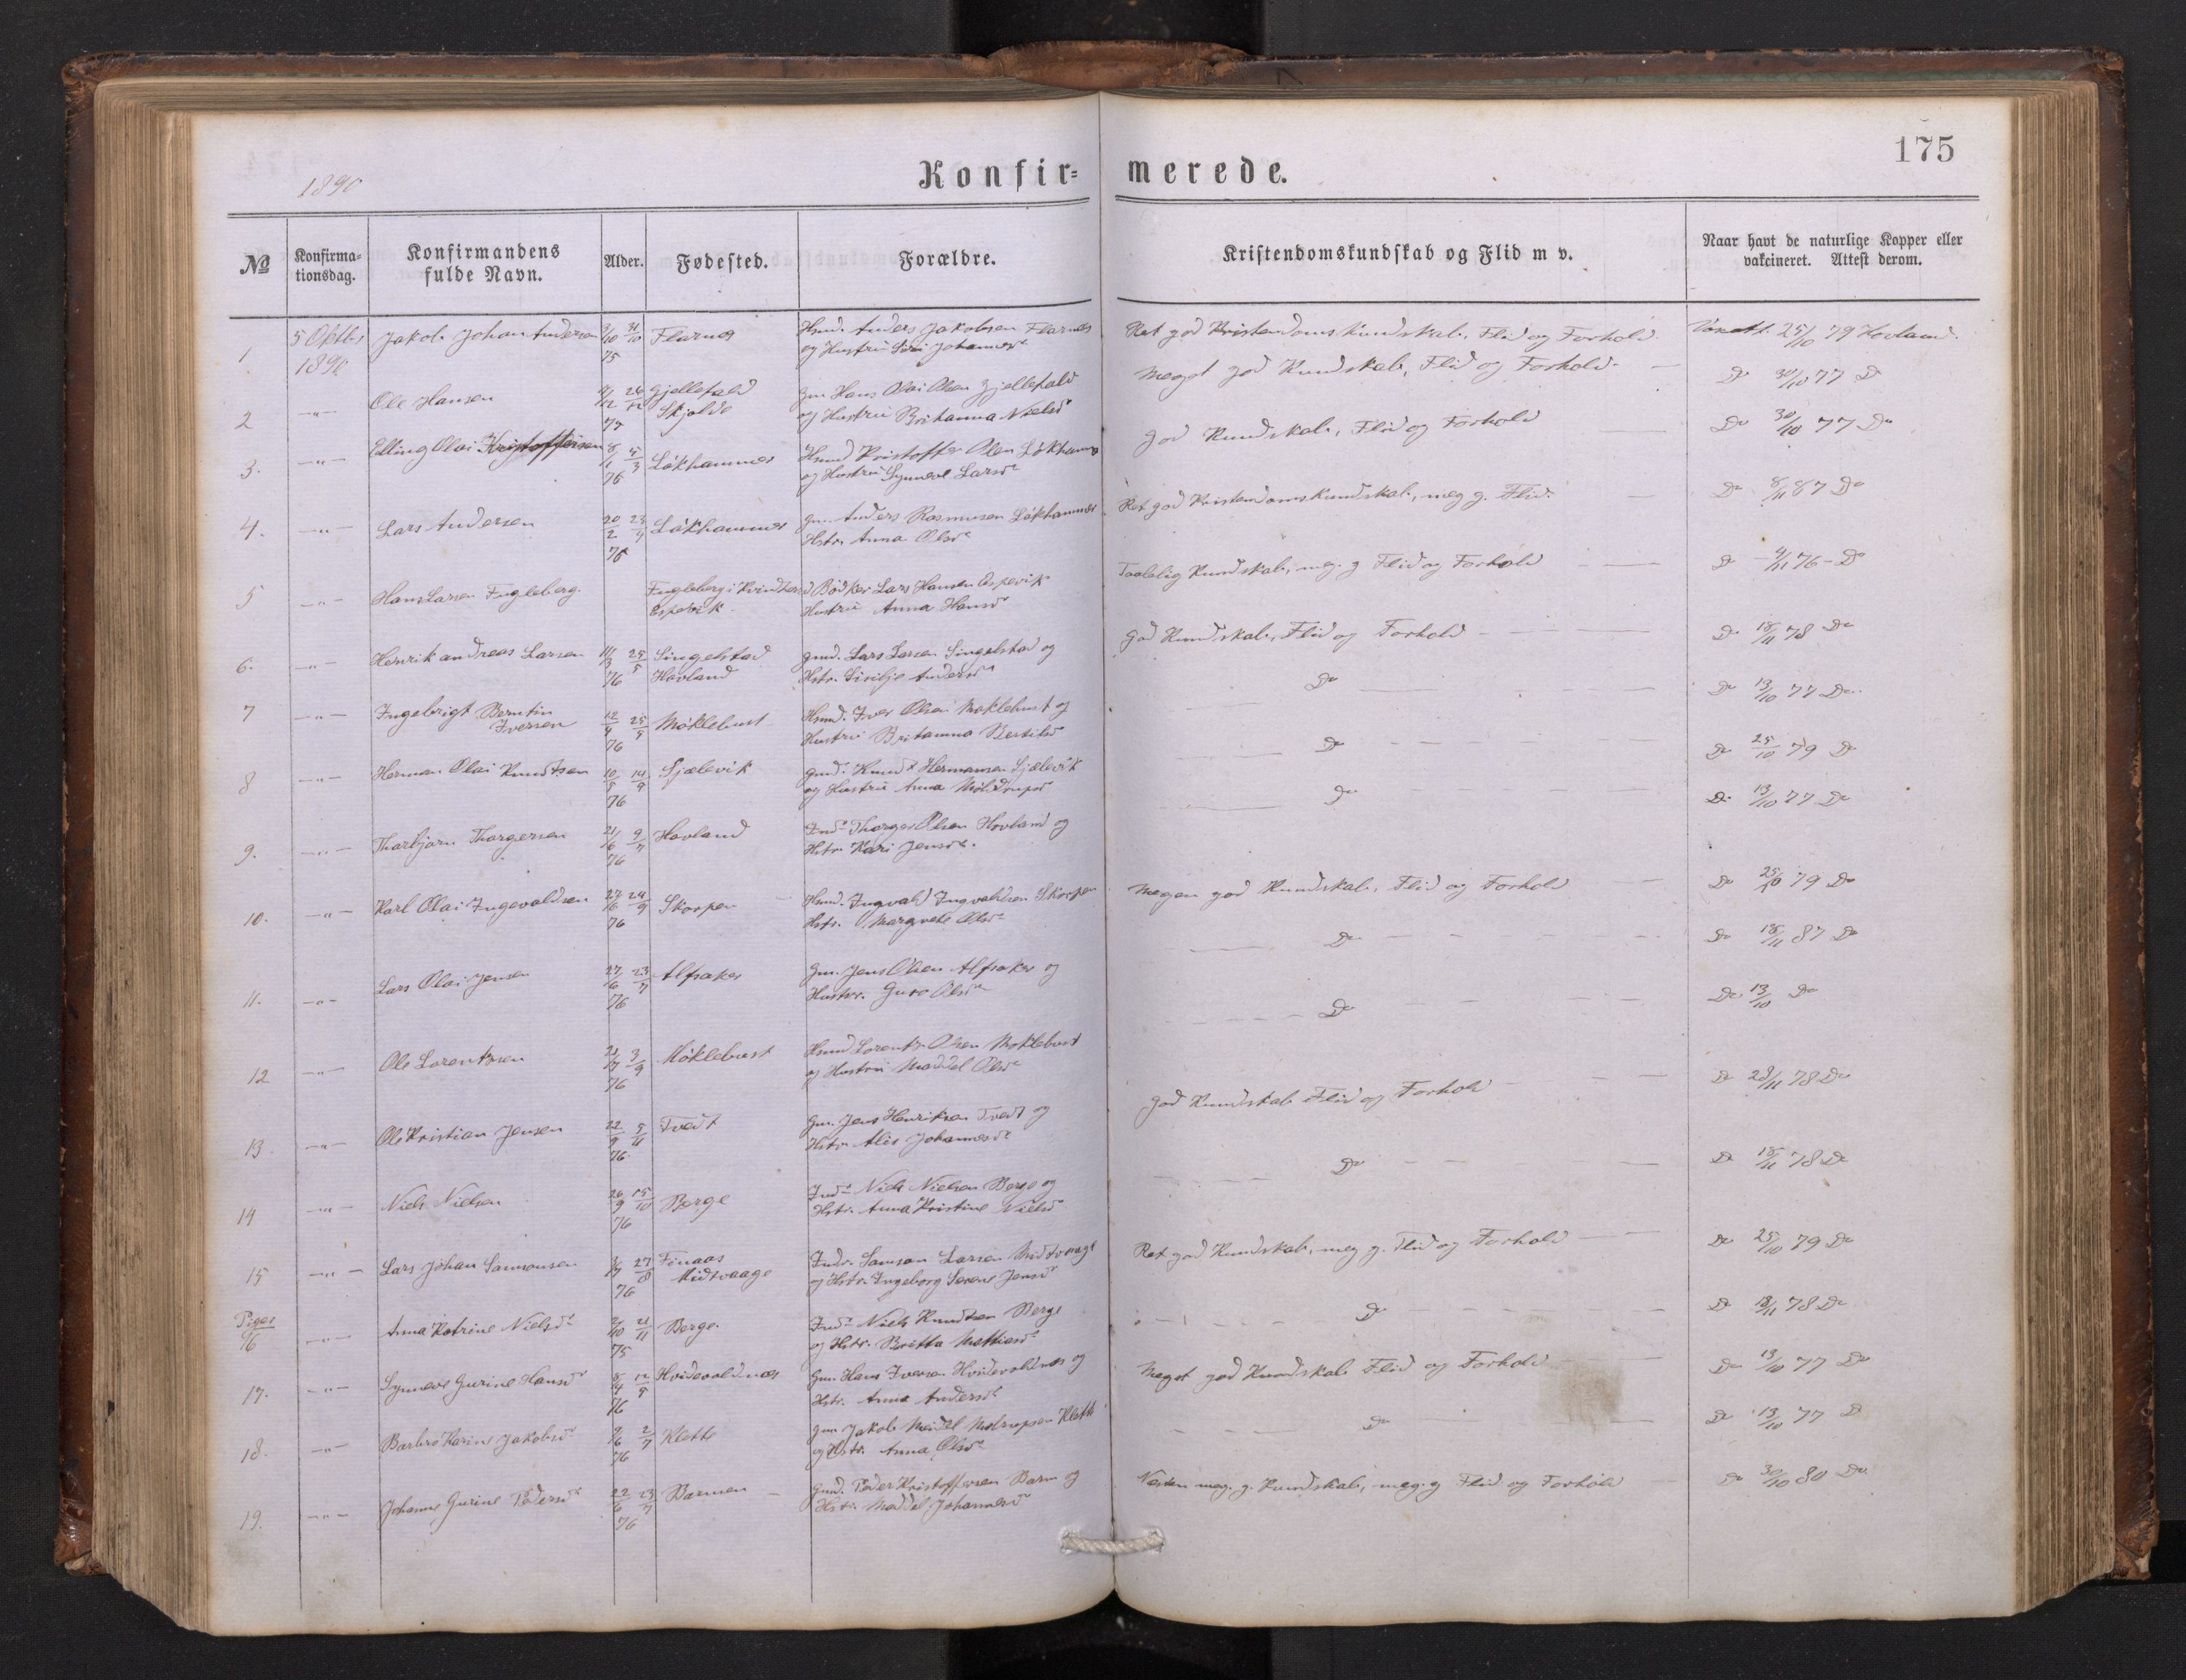 175
1890
Konfir= merede.
№
Konfirma=
tionsdag.
Konfirmandens
fulde Navn.
Alder.
Fødested.
Forældre.
Kristendomskundskab og Flid m v.
Naar havt de naturlige Kopper eller
vakcineret. Attest derom.
1 5 Oktbr Jakob Johan Andersen 31/10 Flarnes Hsmd. Anders Jakobsen Flarnes Ret god Kristendomskundskab, Flid og Forhold. 25/10 79 Hovland.
1890 75 og Hustru Johannesd
2 -"- Ole Hansen 26/12 Gjellefald Gm. Hans Olai Olsen Gjellefald Meget god Kundskab, Flid og Forhold. Do 30/10 77 Do
77 Skjolde og Hustru Brithanna Nielsd
3. -"- Elling Olai Kristoffersen 8/1 5/3 Løkhammer Hsmd Kristoffer Olsen Løkhammer god Kundskab, Flid og Forhold Do 30/10 77 Do
76 og Hustru Synneve Larsd
4. -"- Lars Andersen 20/2 23/4 Løkhammer Gm. Anders Rasmusen Løkhammer Ret god Kristendomskundskab, meg g. Flid. Do 8/11 87 Do
76 Hstr. Anna Olsd
5 -"- Hans Larsen Fugleberg. Fugleberg i Kvindherd Bødker Lars Hansen Espevik Taalelig Kundskab, meg. g Flid og Forhold Do 4/11 76 - Do
Espevik Hustru Anna Hansd
6. -"- Henrik Andreas Larsen 11/3 25/5 Singelstad Gmd. Lars Larsen Singelstad og god Kundskab, Flid og Forhold Do 18/11 78 Do
76 Hovland Hstr. Sisilje Andersd
7 -"- Ingebrigt Berntin 12/4 25/5 Møklebust Hsmd. Iver Olsen Møklebust og Do Do 13/10 77 Do
Iversen 76 Hustru Britanna Bertilsd
8 -"- Herman Olai Knudtsen 10/5 14/9 Sjælevik Gmd. Knud Hermansen Sjælevik Do Do 25/10 79 Do
76 og Hustru Anna
9. -"- Thorbjørn Thorgersen 21/6 9/7 Hovland Thorger Olsen Hovland og Do Do 13/10 77 Do
76 Hstr. Kari Jensd.
10. -"- Karl Olai Ingevaldsen 27/6 24/9 Skorpen Hsmd. Ingvald Ingvaldsen Skorpen Megen god Kundskab, Flid og Forhold Do 25/10 79 Do
76 Hstr. Margrete Olsd
11. -"- Lars Olai Jensen 27/6 23/7 Alfsaker Gm. Jens Olsen Alfsaker og Do Do 18/11 87 Do
76 Hustr. Guro Olsd
12 -"- Ole Lorentzsen 21/7 3/9 Møklebust Hsmd Lorents Olsen Møklebust Do Do 13/10 Do
76 og Hustru Maddel Olsd
13 -"- Ole Kristian Jensen 22/9 5/11 Tvedt Gm. Jens Henriksen Tvedt og god Kundskab Flid og Forhold Do 28/11 78 Do
76. Hstr. Alis Johannesd
14 -"- Niels Nielsen 26/9 15/10 Berge Niels Nielsen Berge og Do Do 18/11 78 Do
76 Hstr. Anna Kristine Nielsd
15 -"- Lars Johan Samsonsen 27/8 Fonaas Samson Larsen Midtvaage Ret god Kundskab, meg g. Flid og Forhold Do 25/10 79 Do
76 Midtvaage og Hstr. Ingeborg Serene Jensd
Piger
16 -"- Anna Katrine Nielsd 21/11 Berge Niels Knudsen Berge Do Do 18/11 78 Do
75 og Hstr. Britta Mathiasd
17. -"- Synneve Gurine Hansd 8/4 12/5 Hvidevoldnes Gm. Hans Iversen Hvidevoldnes og Meget god Kundskab Flid og Forhold Do 13/10 77 Do
76 Hstr. Anna Andersd
18. -"- Barbro Karine Jakobsd 9/6 2/7 Klette Gm. Jakob Meidel Klette Do Do 13/10 77 Do
76 og Hstr. Anna Olsd
19. -"- Johanne Gurine Pedersd 22/6 23/7 Barmen Gmd. Peder Kristoffersen Barm og Næsten meg. g. Kundskab, meg. g Flid og Forhold Do 30/10 80 Do
76 Hstr. Maddel Johannesd